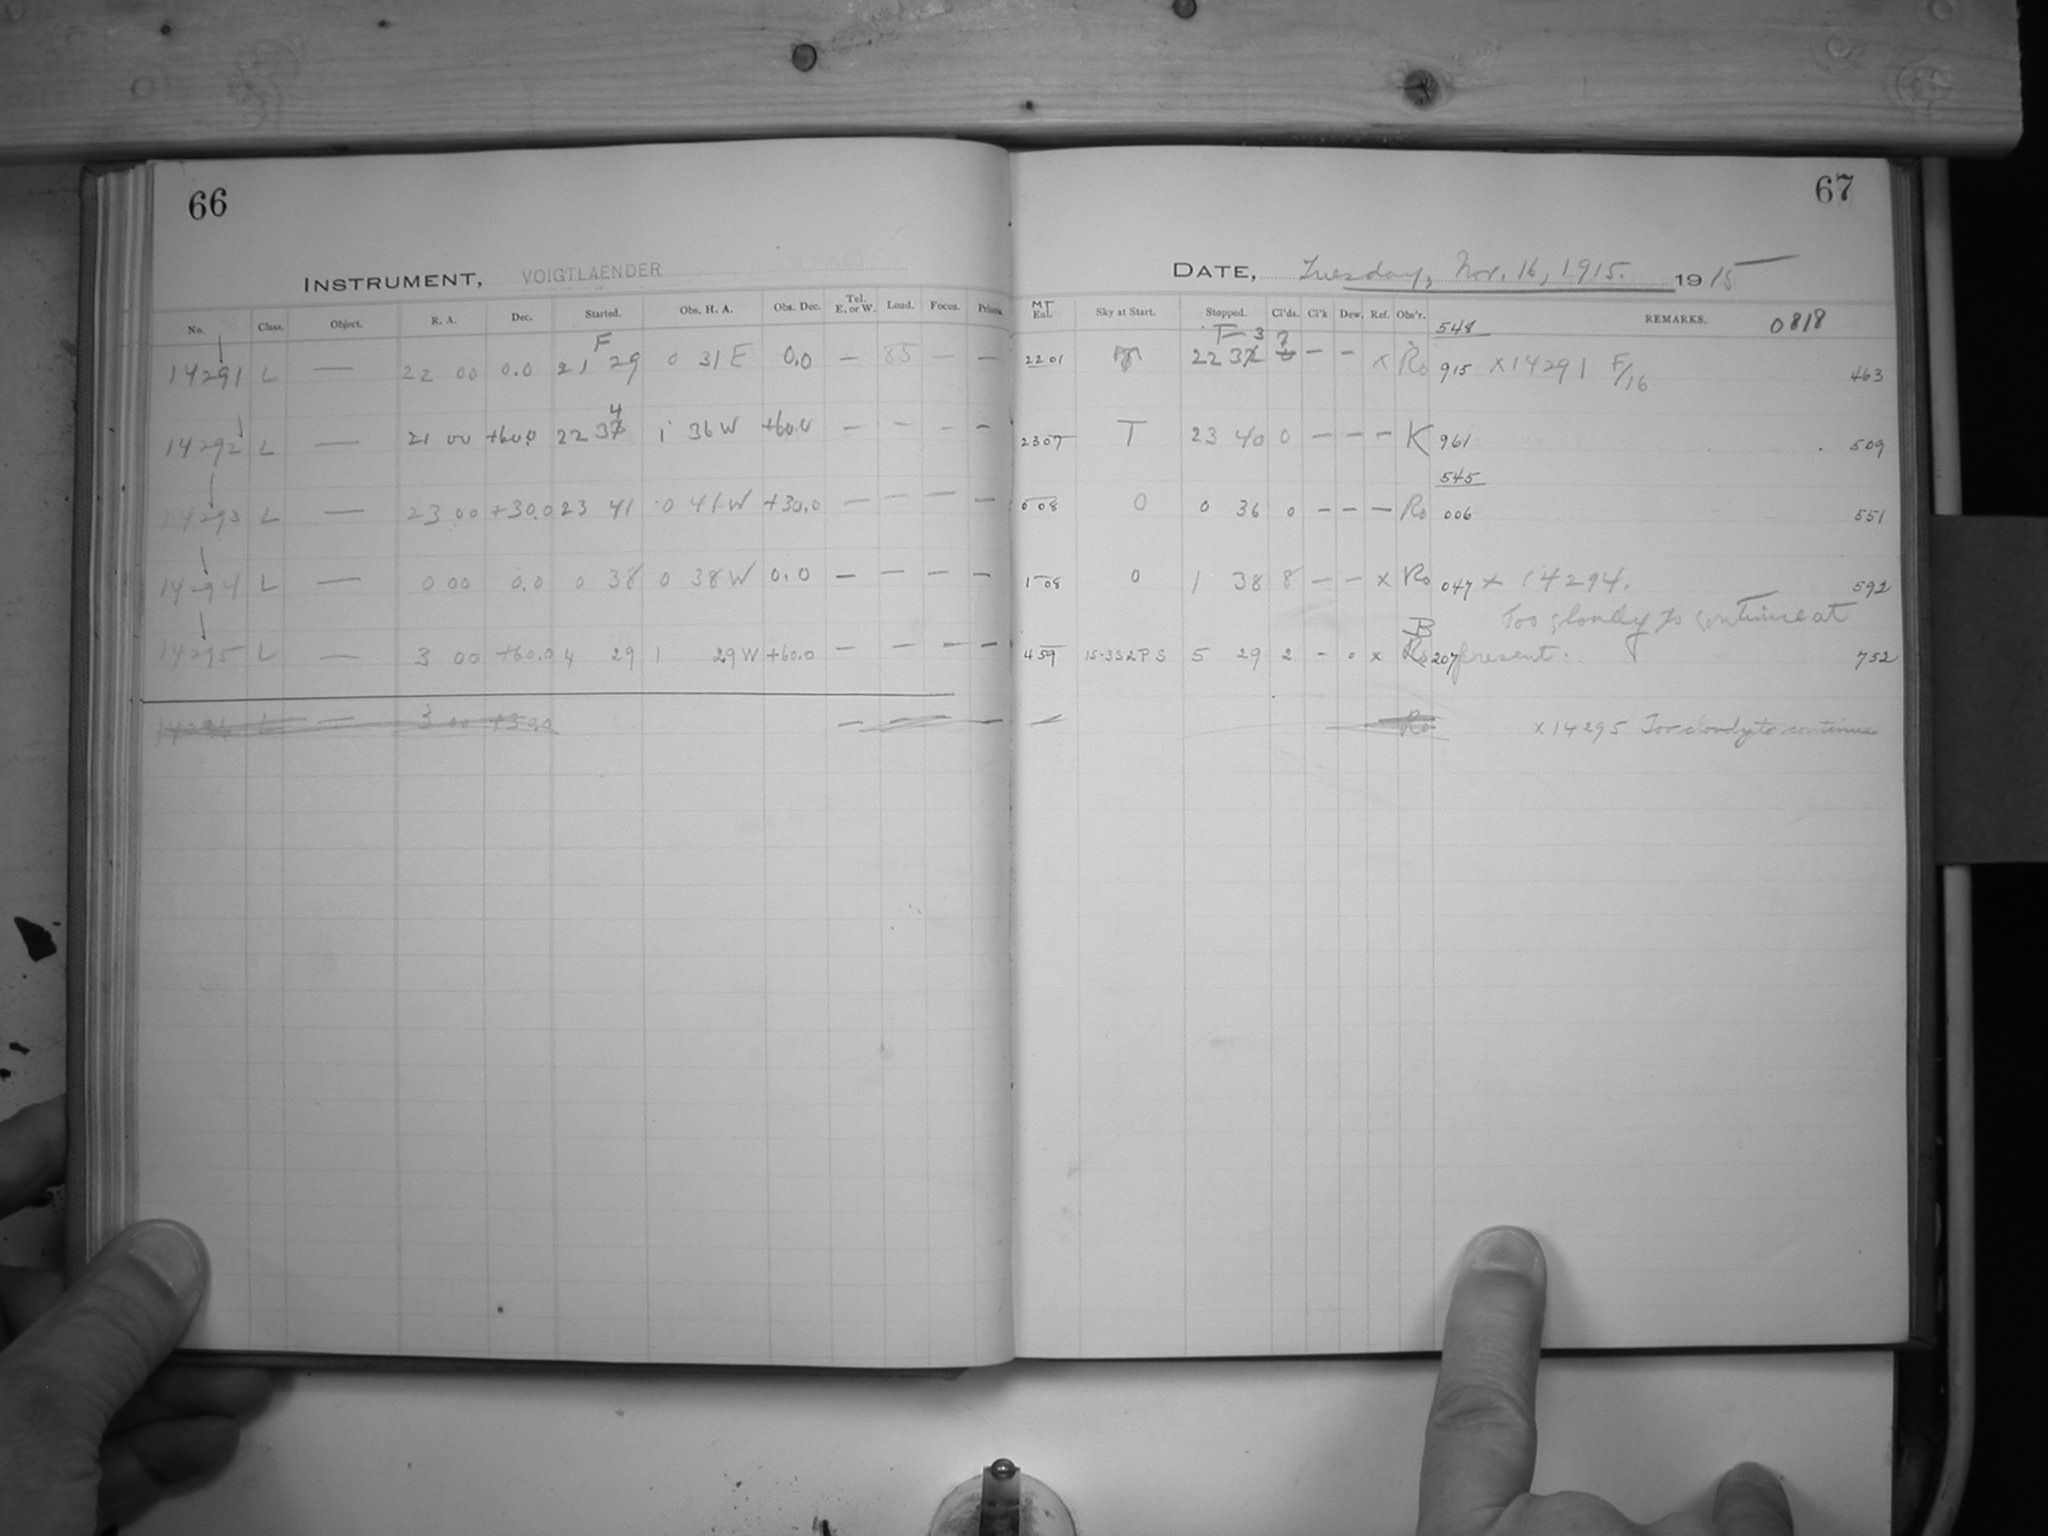 66
67
INSTRUMENT, VOIGTLAENDER
DATE, Tuesday, Nov. 16, 1915. 1915
No. Class. Object. R. A. Dec. Started. Obs. H. A. Obs. Dec. Tel. E. or W. Load. Focus. Prisms. MT Eal. Sky at Start. Stopped. Cl'ds. Cl'k Dew. Ref. Obs'r. REMARKS. 0818
548
14291 L — 22 00 0.0 21 29 0 31 E 0.0 — 85 — — 2201 22 3 — — x Ro 915 x14291 F/16 463
14292 L — 21 00 +60.0 22 34 1 36 W +60.0 — — — — 2307 T 23 40 0 — — — K 961 509
545
14293 L — 23 00 +30.0 23 41 0 41 W +30.0 — — — — 008 0 0 36 0 — — — Ro 006 551
14294 L — 0 00 0.0 0 38 0 38 W 0.0 — — — — 108 0 1 38 8 — — x Ro 047 x 14294. 592
Too cloudy to continue at
14295 L — 3 00 +60.0 4 29 1 29 W +60.0 — — — — 459 15-3S2PS 5 29 2 - 0 x B Ro 207 present. 752
14296 L — 3 00 +30.0 — — — — Ro x 14295 Too cloudy to continue